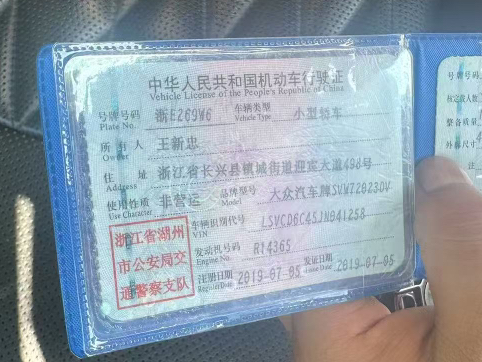 中华人民共和国机动车行驶证
Vehicle License of the People's Republic of China
号牌号码 浙EZ69W6 车辆类型 小型轿车
Plate No. Vehicle Type
所有人 王新忠
Owner
住址 浙江省长兴县镇城街道迎宾大道498号
Address
使用性质 非营运 品牌型号 大众汽车牌SVW7202
Use Character Model
车辆识别代号 LSVCD6C45JN041258
VIN
发动机号码 R14365
Engine No.
注册日期 2019-07-05 发证日期 2019-07-05
Register Date Issue Date
浙江省湖州
市公安局交
通警察支队
号牌号
核定载人数
整备质量
外廓尺寸